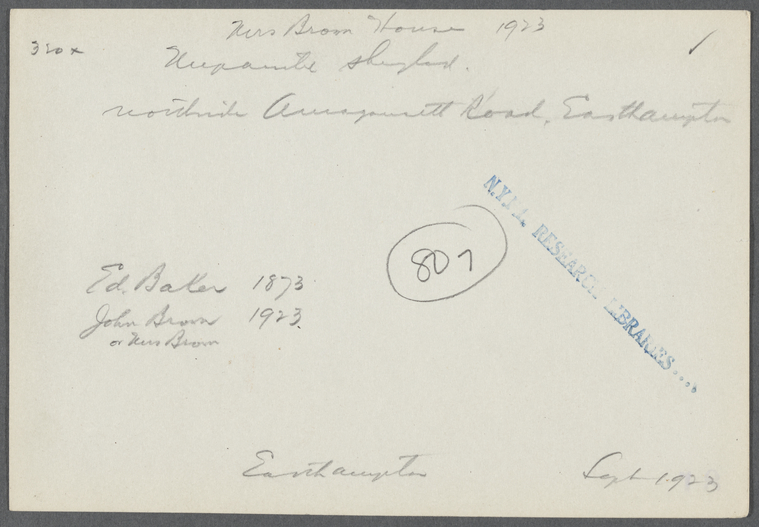 Mrs Brown House 1923
320x
shingled.
northside Amagansett Road, Easthampton
N.Y.P.L. RESEARCH LIBRARIES....
807
Ed. Baker 1873
John Brown 1923.
or Mrs Brown
Easthampton Sept 1923